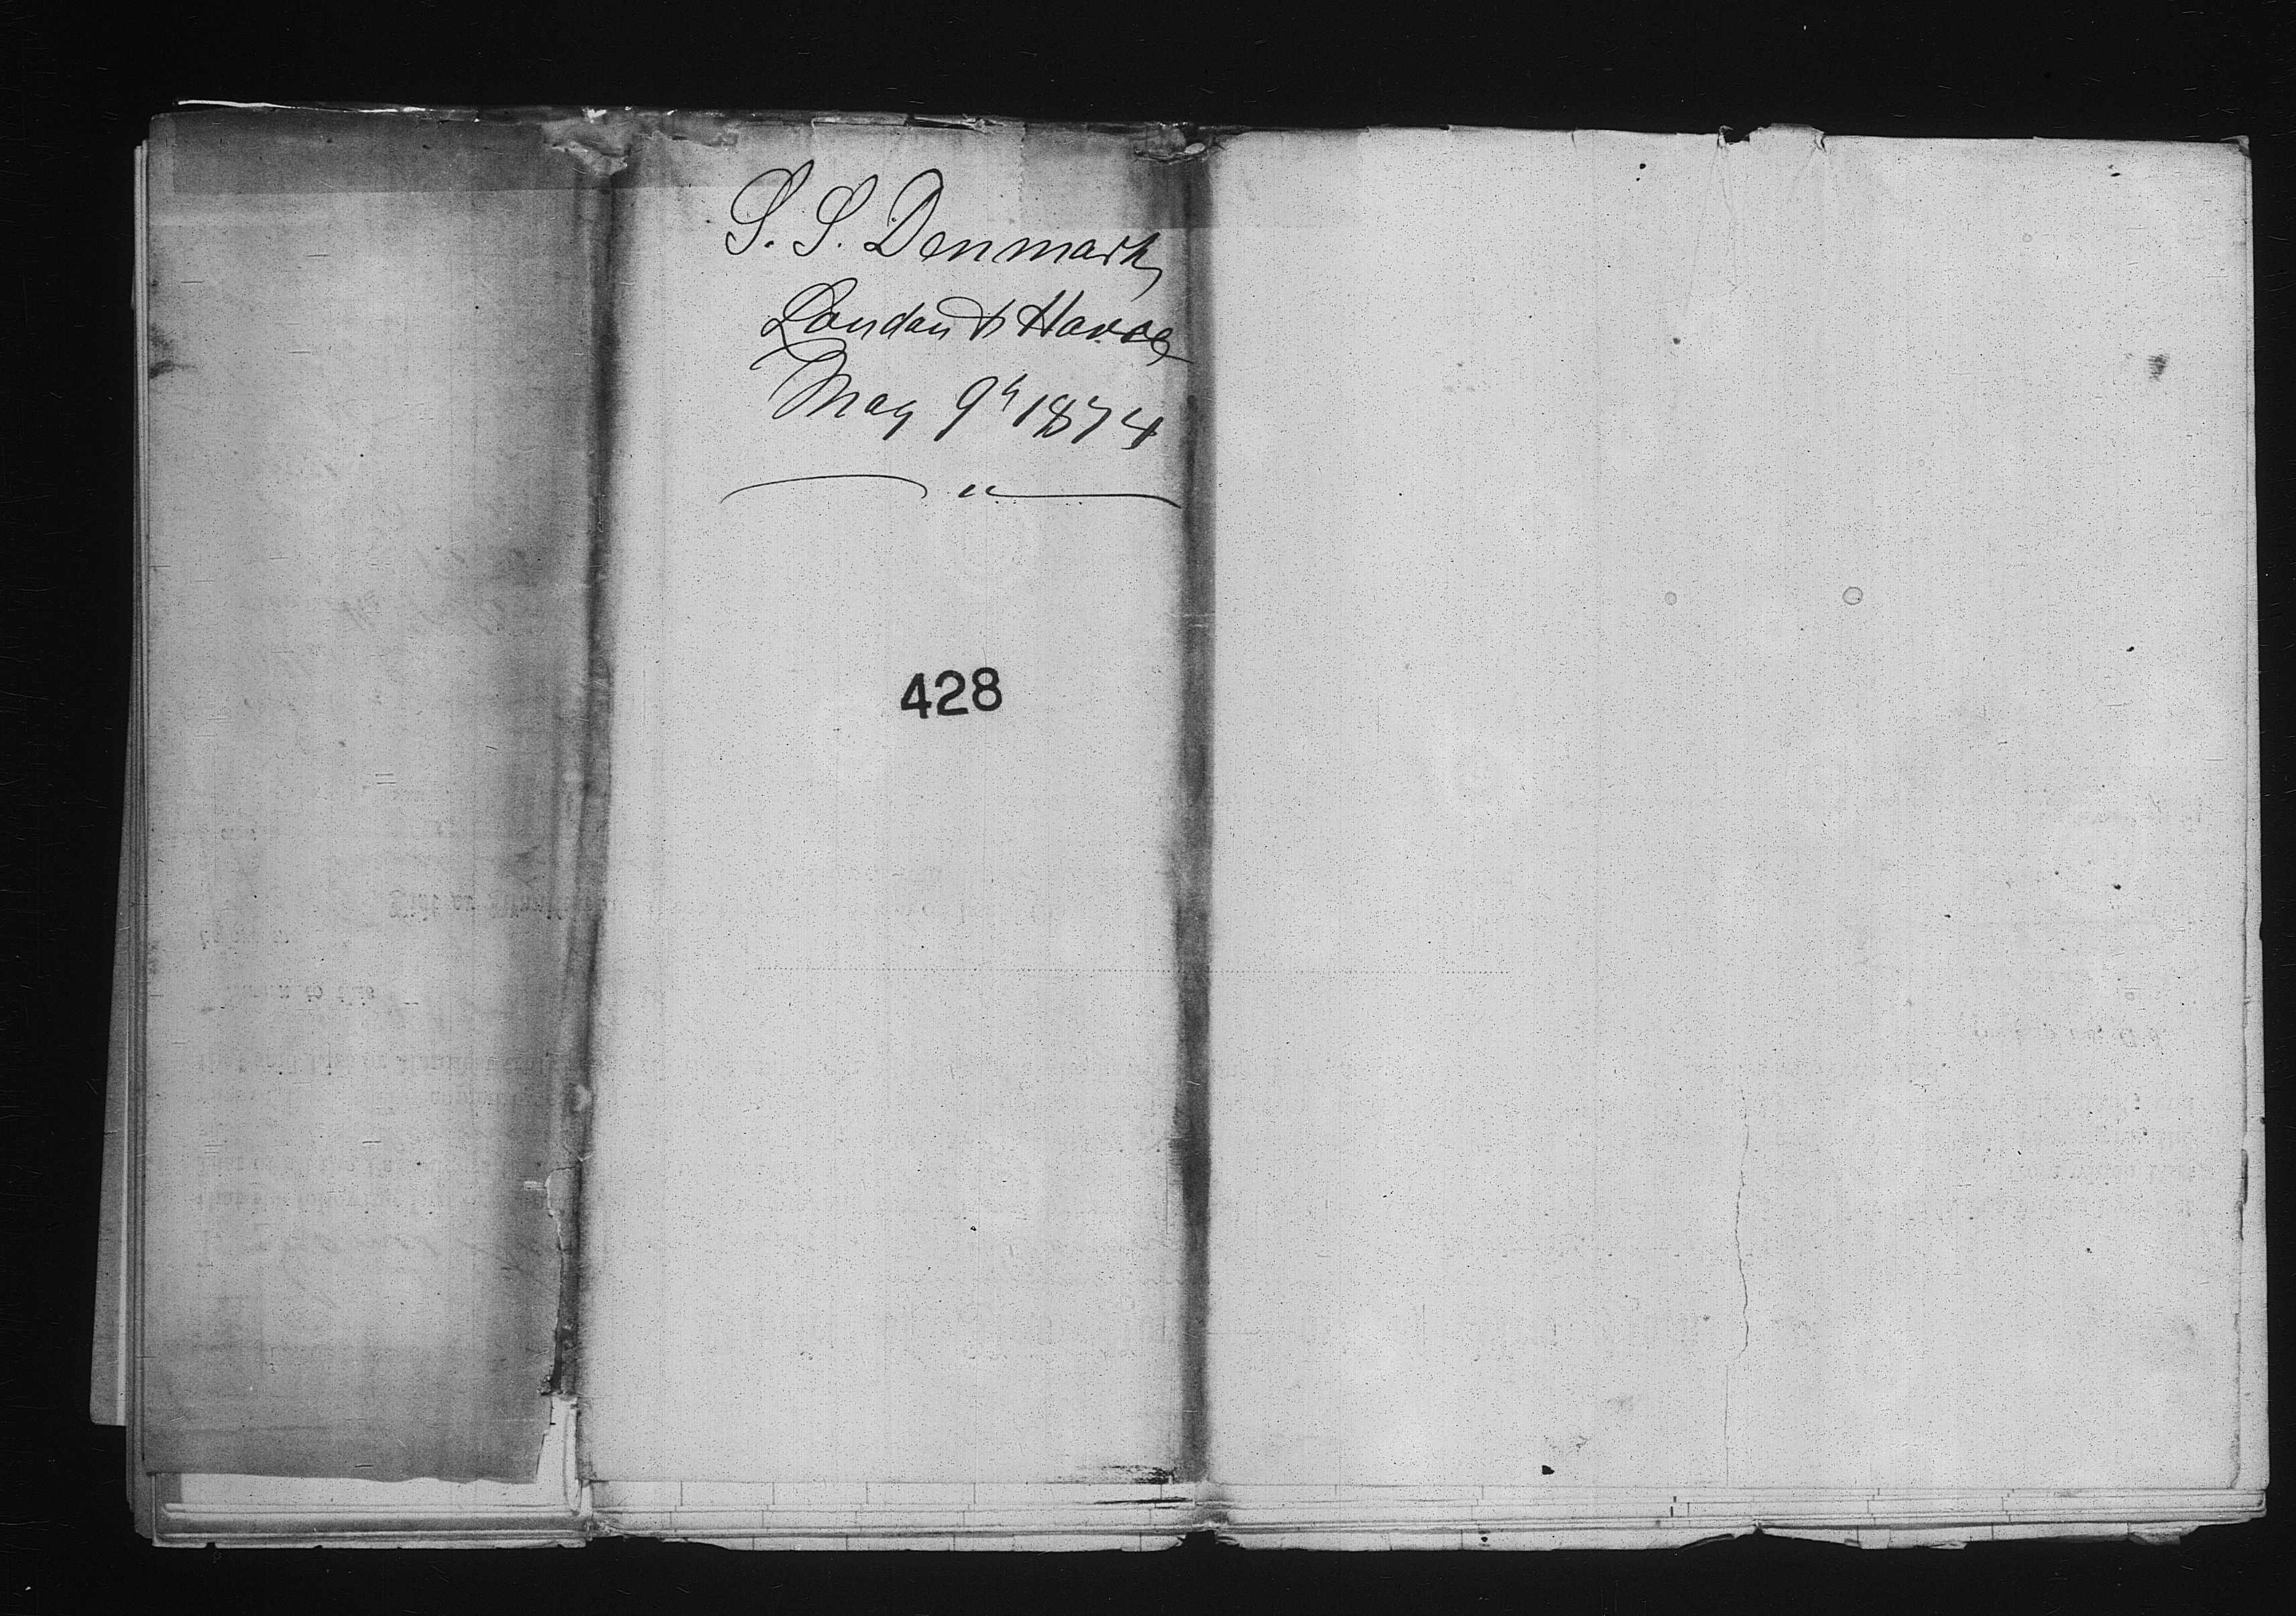 S. S. Denmark
London & Havre
May 9h 1874
428